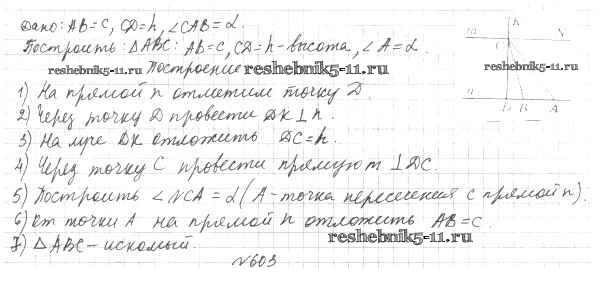 Дано: AB=c, CD=h, ∠CAB=α.
Построить: △ABC: AB=c, CD=h-высота, ∠A=α.
reshebnik5-11.ru Построение reshebnik5-11.ru
1) На прямой n отметим точку D.
2) Через точку D провести DK⊥n.
3) На луче DK отложить DC=h.
4) Через точку C провести прямую m ⊥DC.
5) Построить ∠NCA=α (A-точка пересечения с прямой n).
6) От точки A на прямой n отложить AB=c.
7) △ABC-искомый.
reshebnik5-11.ru
№603
K
m C N
reshebnik5-11.ru
n B A